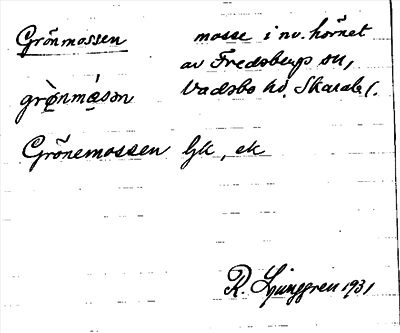 Grönmossen mosse i nv. hörnet
av Fredsbergs sn,
grø̀nmɷ́sən Vadsbo hd, Skarab l.
Grönemossen Gk, ek
R. Ljunggren 1931